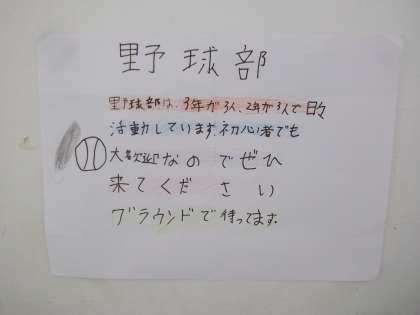 野球部
野球部は、3年が3人、2年が3人で日々
活動しています。初心者でも
大歓迎なのでぜひ
来てください
グラウンドで待ってます。